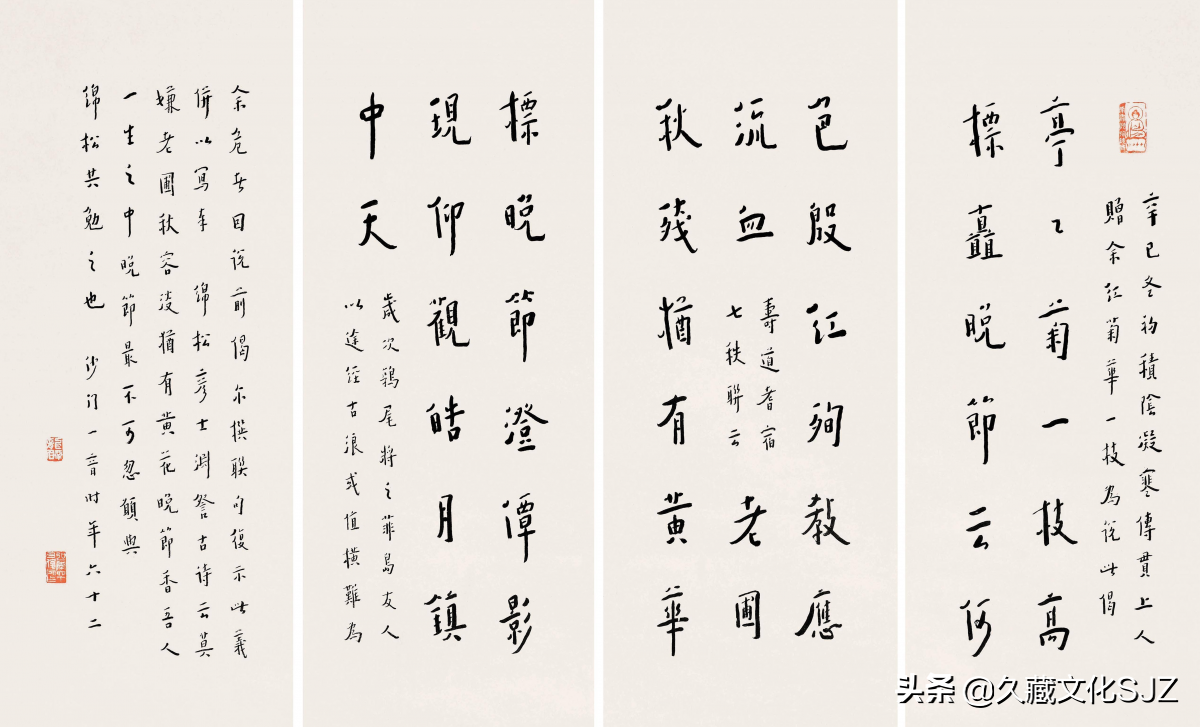 辛巳冬初積陰凝寒傳貫上人
贈余紅菊華一枝為說此偈
亭々菊一枝高
標矗晚節云何
色殷紅殉教應
流血
壽道耆宿
七秩聯云
老圃
秋殘猶有黃華
標晚節澄潭影
現仰觀皓月鎮
中天
歲次鶉尾將之菲島友人
以途徑古浪或值橫難為
余危者因說前偈尔撰聯句復示此義
併以寫奉 綿松彥士淵詧古诗云莫
嫌老圃秋容淡猶有黃花晚節香吾人
一生之中晚節最不可忽願與
綿松共勉之也 沙门一音时年六十二
头条 @久藏文化SJZ